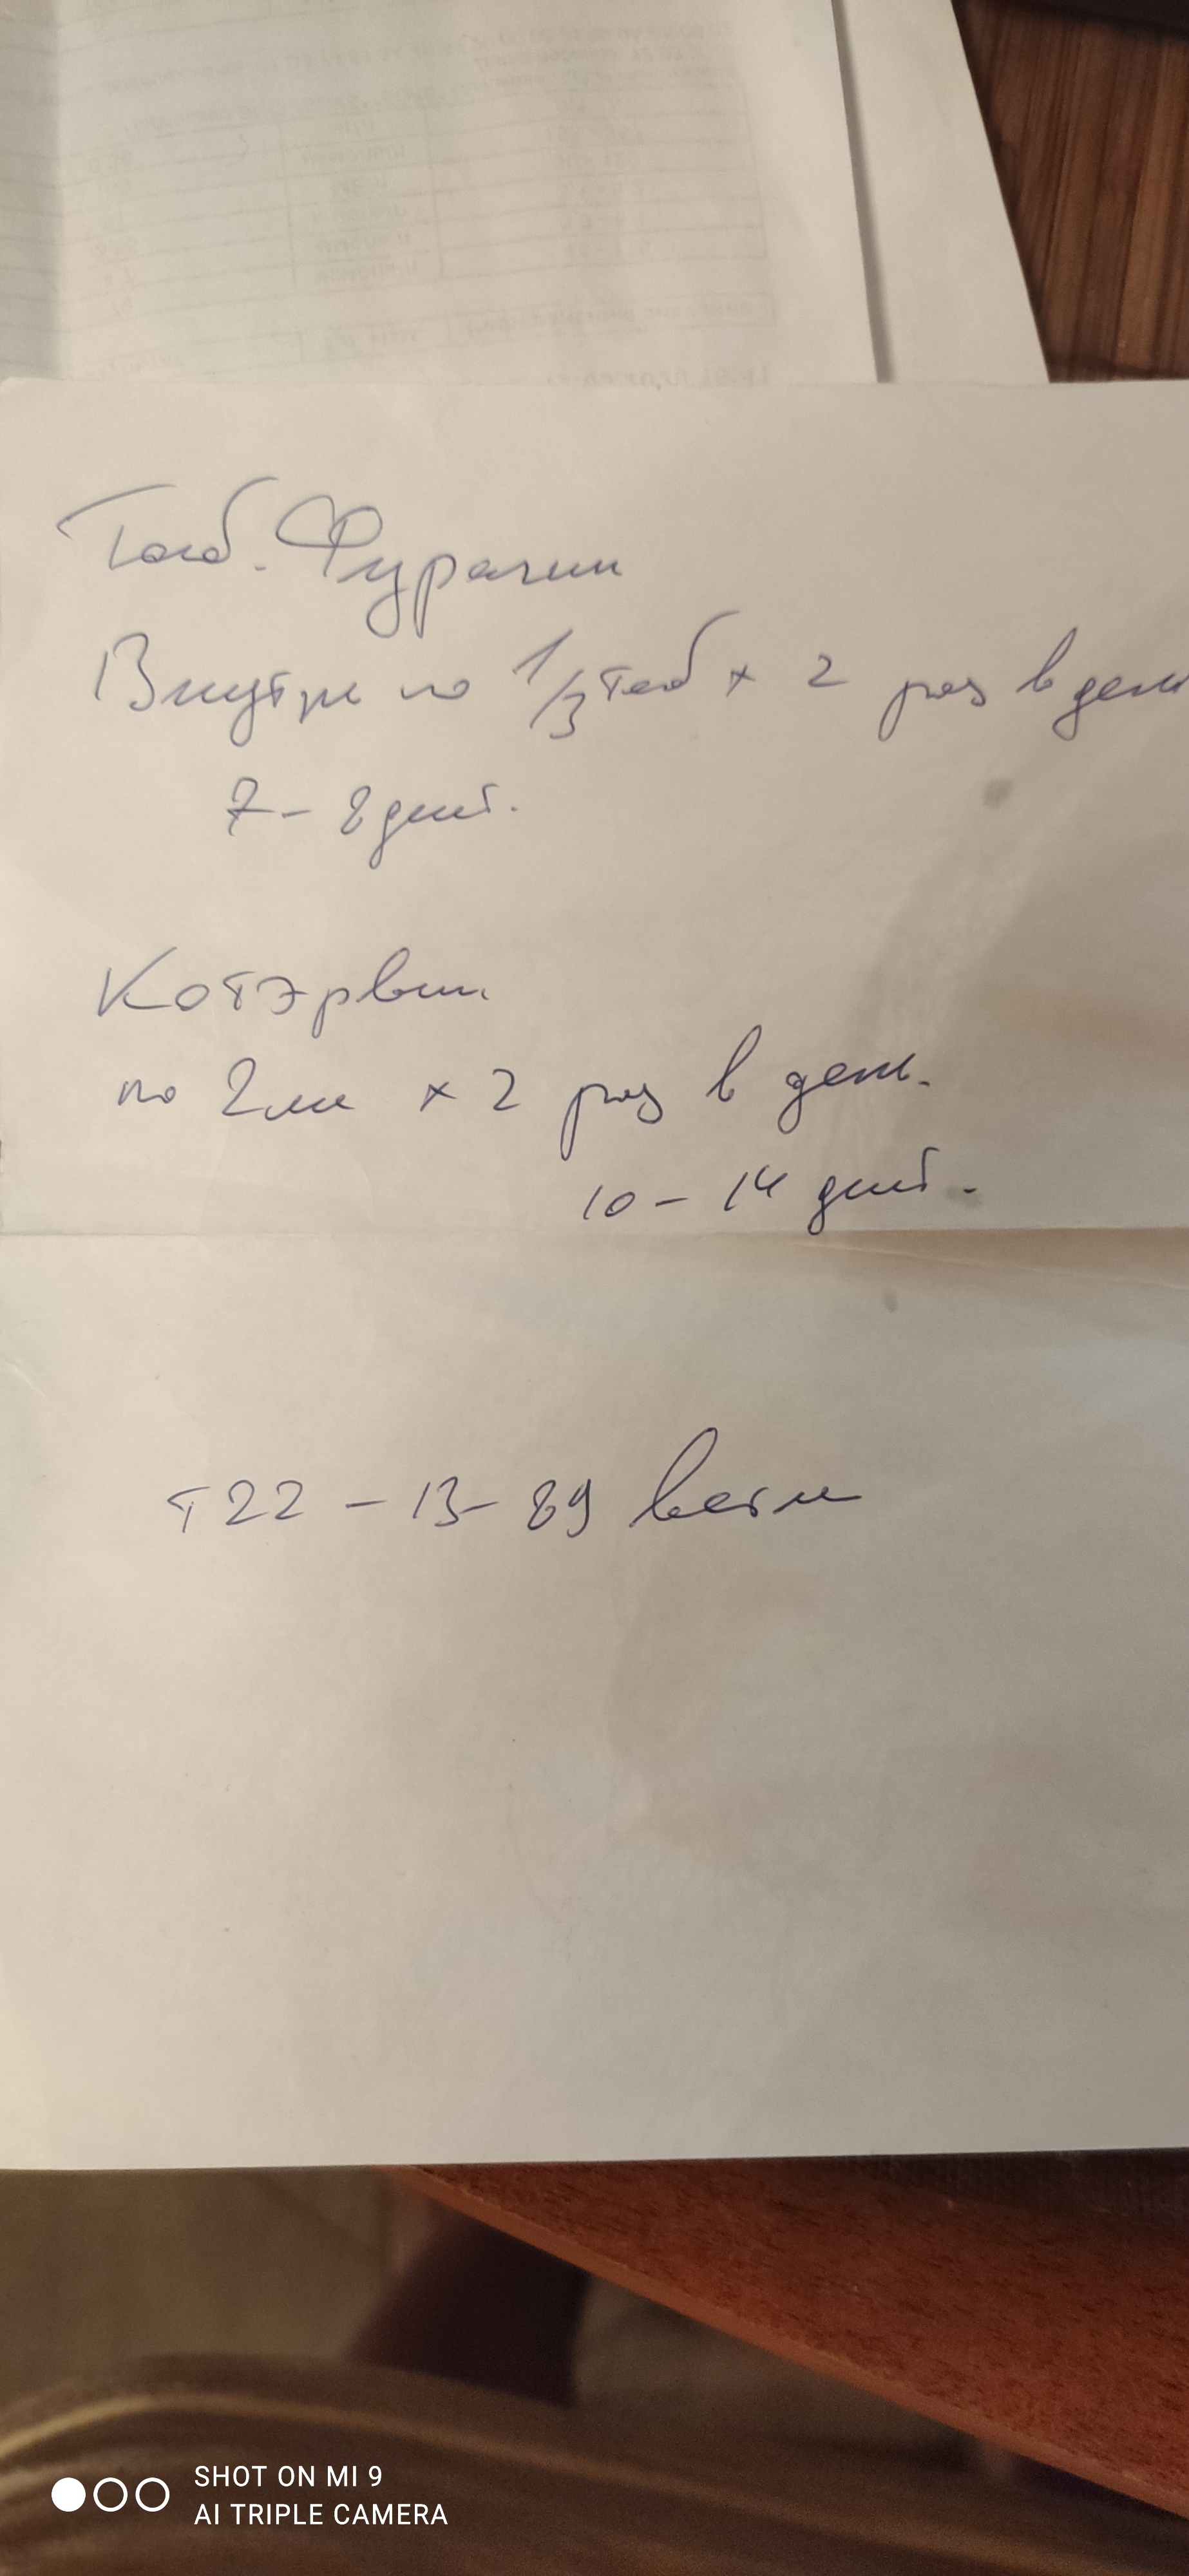 Таб. Фурагин
Внутрь по 1/3 таб x 2 раз в день
7 - 8 дней.
Котэрвин
по 2 мл x 2 раз в день.
10 - 14 дней.
т 22 - 13 - 89
SHOT ON MI 9
AI TRIPLE CAMERA